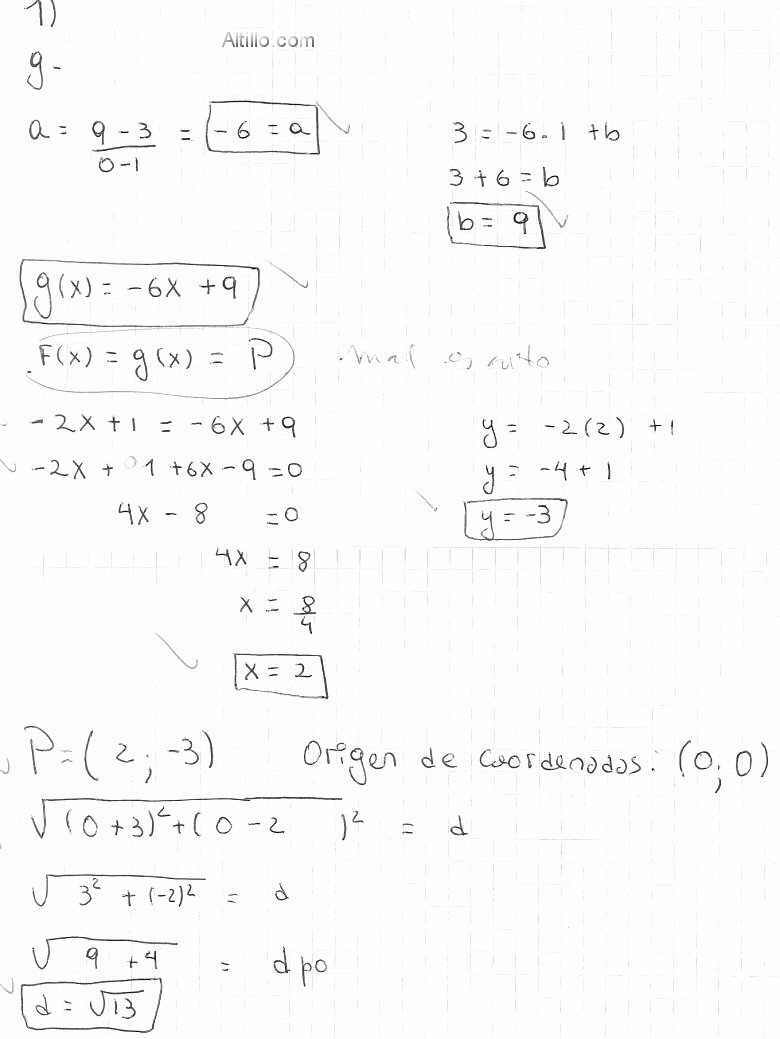 1)
Altillo.com
g -
a = 9 - 3 / 0 - 1 = - 6 = a
3 = -6 . 1 + b
3 + 6 = b
b = 9
g(x) = -6x + 9
F(x) = g(x) = P mal escrito
- 2x + 1 = -6x + 9
-2x + 1 + 6x - 9 = 0
4x - 8 = 0
4x = 8
x = 8/4
x = 2
y = -2(2) + 1
y = -4 + 1
y = -3
P = (2 ; -3) Origen de coordenadas: (0; 0)
√(0 + 3)² + (0 - 2 )² = d
√3² + (-2)² = d
√9 + 4 = d po
d = √13